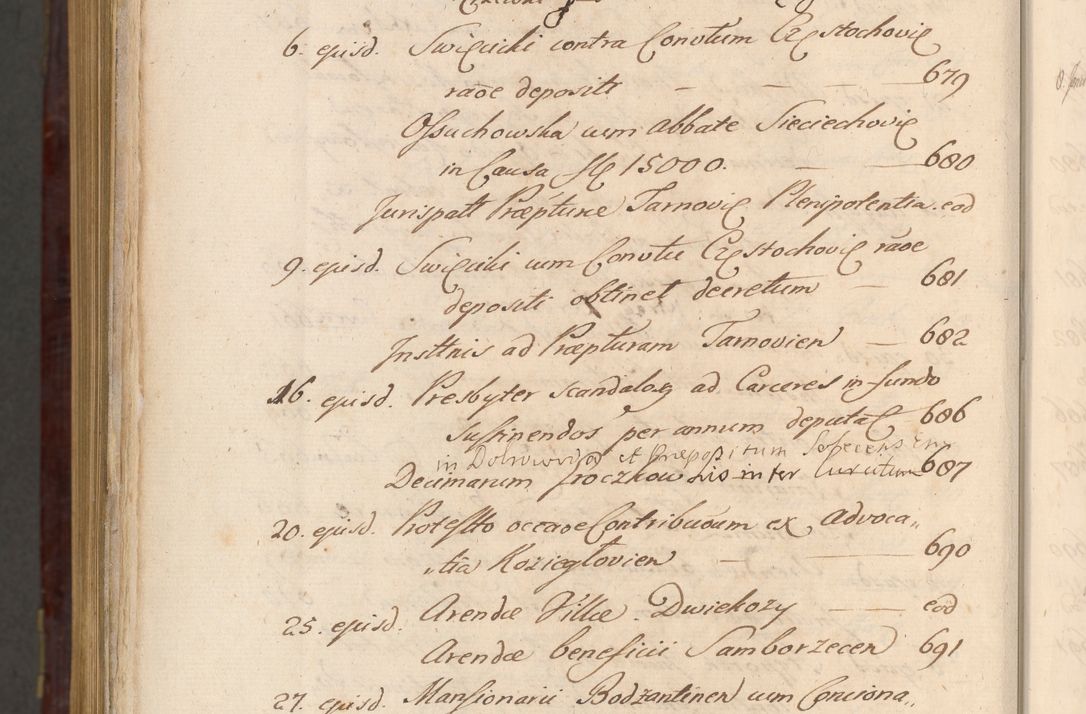 6. ejusd. Swięcicki contra Convtum Częstochovię
raõe depositi — — — 679
Ossuchowska cum Abbate Sieciechovię
in Causa fl 15000. — 680
Jurispatt Præpturæ Tarnovię Plenipotentia. eod
9. ejusd. Swięcicki cum Convtu Częstochovię raõe
depositi obtinet decretum — 681
Insttnis ad Præpturam Tarnovien — 682
16. ejusd. Presbyter scandalos ad Carceres in fundo
sustinendos per annum deputat 686
in et Præpositum
Decimarum inter Curatum 687
20. ejusd. Protesto occaõe Contribuõum ex Advoca„
„tia Kozieglovien — 690
25. ejusd. Arendæ Villæ Dwiekozy — eod
Arendæ beneficii Samborzecen 691
27. ejusd. Mansionarii Bodzantinen cum Conciona„